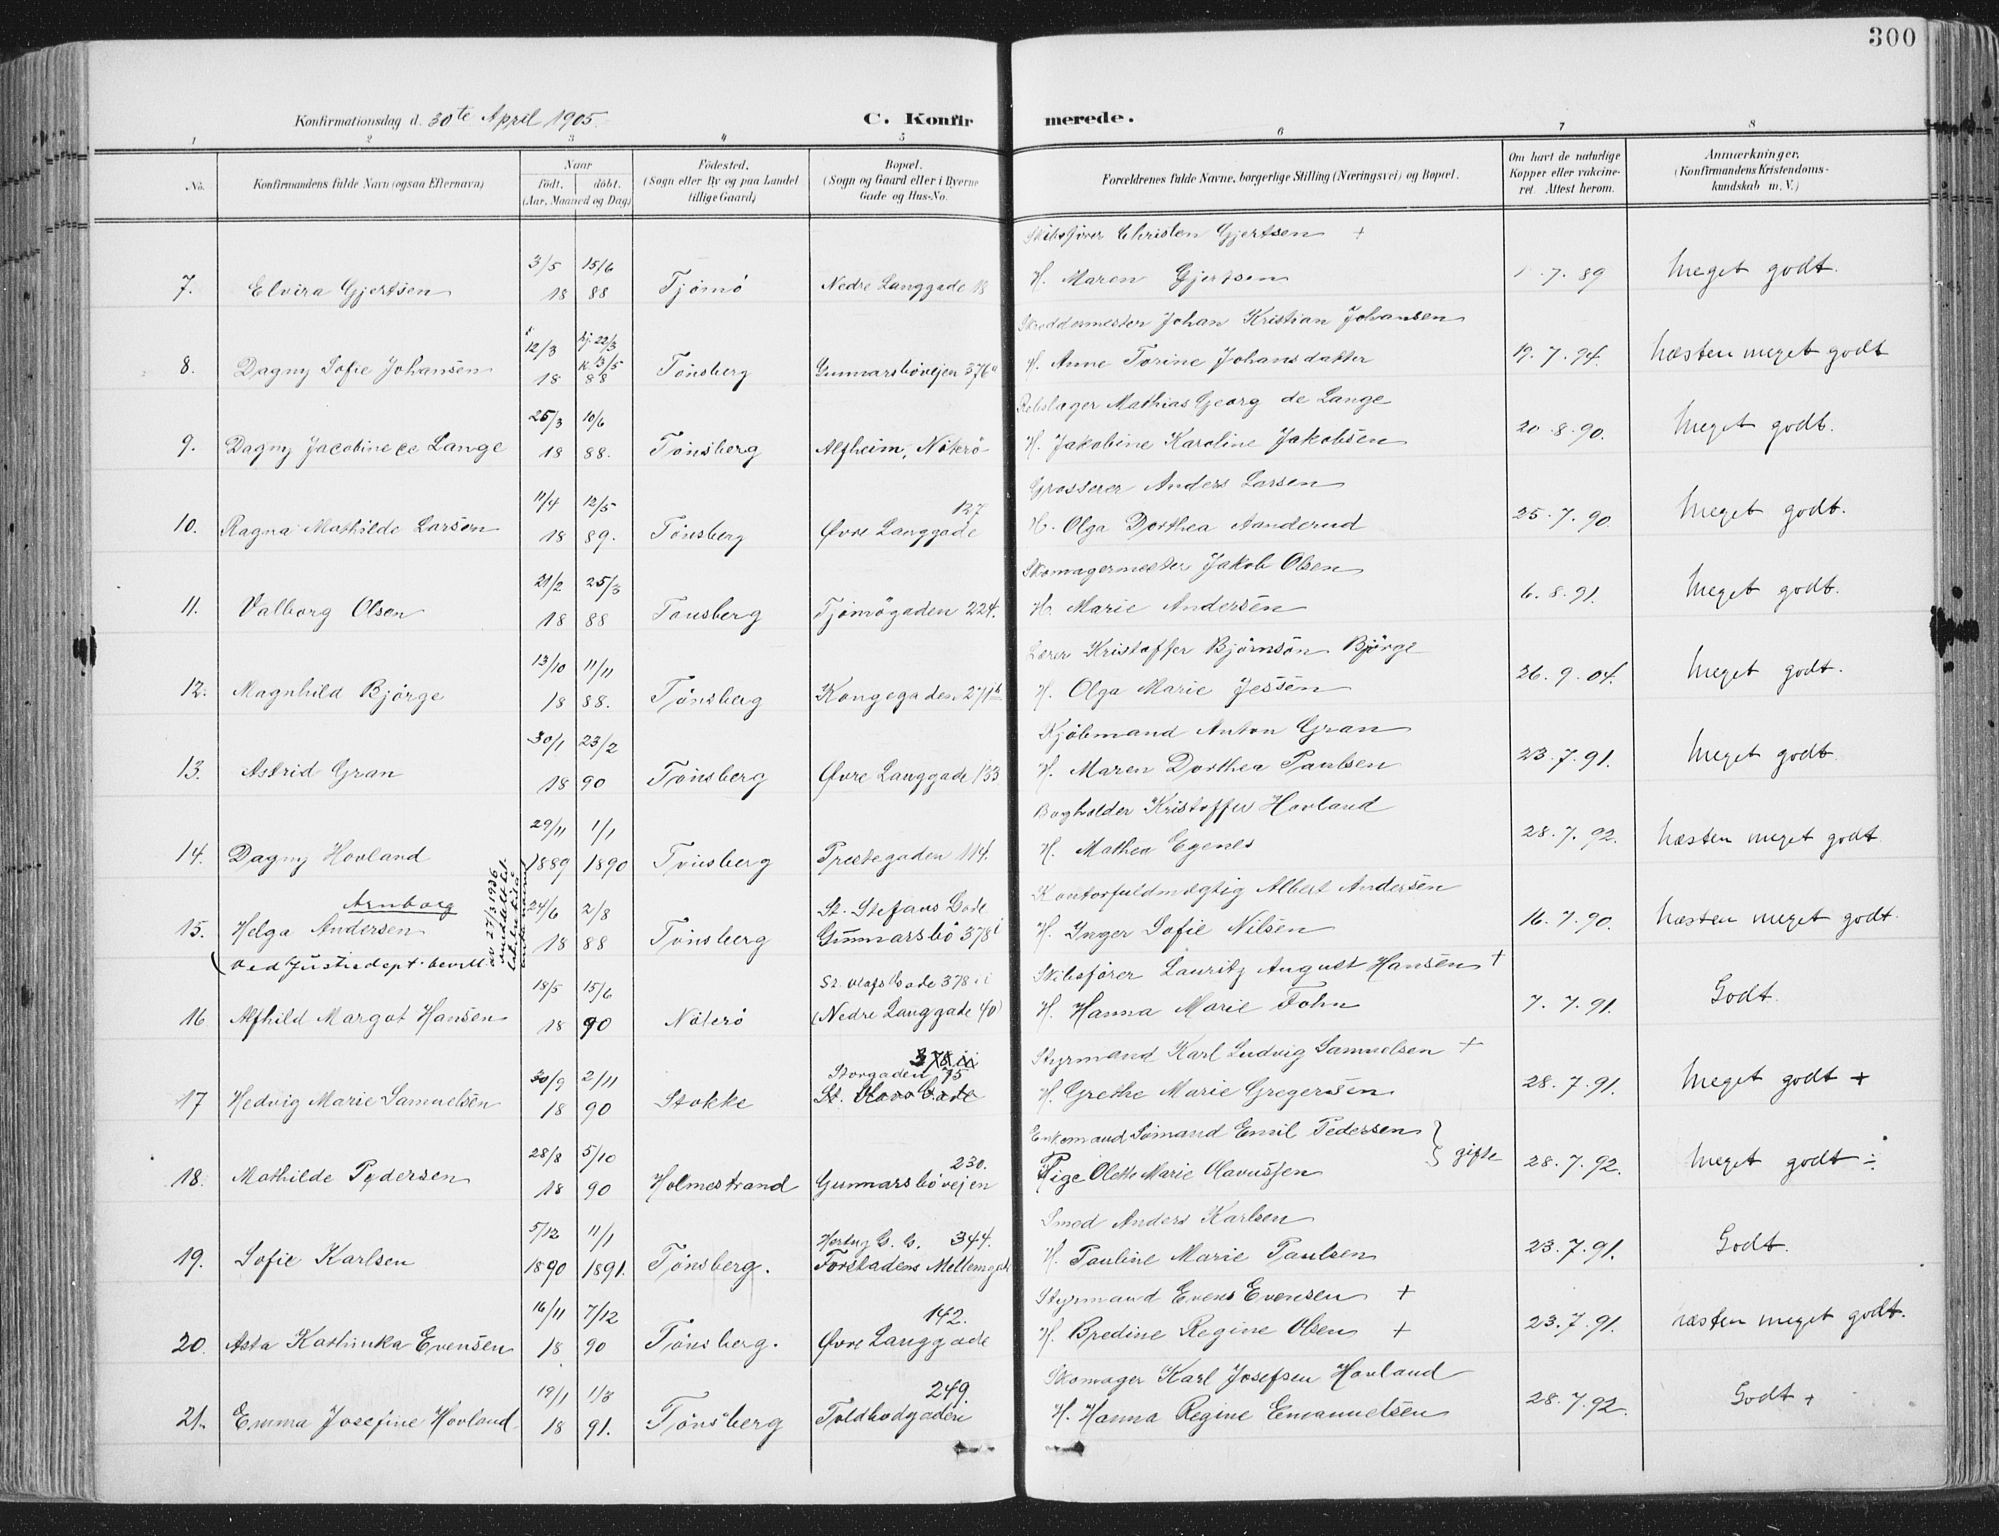 300
Konfirmationsdag d. 30te April 1905.
C. Konfirmerede.
1 2 3 4 5 6 7 8
No. Konfirmandens fulde Navn (ogsaa Efternavn) Naar födt. döbt. (Aar, Maaned og Dag) Födested. (Sogn eller By og paa Landet tillige Gaard) Bopæl. (Sogn og Gaard eller i Byerne Gade og Hus-No. Forældrenes fulde Navne, borgerlige Stilling (Næringsvei) og Bopæl. Om havt de naturlige Kopper eller vakcineret. Attest herom. Anmærkninger. (Konfirmandens Kristendomskundskab m. V.)
Skibsfører Christen Gjertsen +
3/5 15/6
7. Elvira Gjertsen 18 88 Tjömö Nedre Langgade 18 H. Maren Gjertsen 7.89 Meget godt.
Skreddermester Johan Kristian Johansen
12/3 hj. 22/3 K. 13/5
8. Dagny Sofie Johansen 18 88 Tönsberg Gunnarsbövejen 376a H. Anne Torine Johansdatter 19.7.94. Næsten meget godt
Rebslager Mathias Georg de Lange
25/3 10/6
9. Dagny Jacobine de Lange 18 88. Tönsberg Alfheim, Nöterö H. Jakobine Karoline Jakobsen 20.8.90. Meget godt.
Grosserer Anders Larsen
11/4 12/5 127
10. Ragna Mathilde Larsen 18 89. Tönsberg Øvre Langgade H. Olga Dorthea Aanderud 25.7.90. Meget godt.
Skomagermester Jakob Olsen
21/2 25/3
11. Valborg Olsen 18 88 Tönsberg Tjömögaden 224. H. Marie Andersen 6.8.91. Meget godt.
Lærer Kristoffer Björnsön Björge
13/10 11/11
12. Magnhild Björge 18 88. Tönsberg Kongegaden 271b H. Olga Marie Jessen 26.9.04. Meget godt.
Kjöbmand Anton Gran
30/1 23/2
13. Astrid Gran 18 90 Tönsberg Øvre Langgade 133 H. Maren Dorthea Paulsen 23.7.91. Meget godt.
Bogholder Kristoffer Hovland
29/11 1/1
14. Dagny Hovland 1889 1890 Tönsberg Præstegaden 114. H. Mathea Egenes 28.7.92. Næsten meget godt
Kontorfuldmægtig Albert Andersen
Arnborg 24/6 2/8 St. Stefans Gade
15. Helga Andersen 18 88 Tönsberg Gunnarsbö 378i H. Inger Sofie Nilsen 16.7.90. Næsten meget godt.
(Ved Justisdept. bevill. av 27/3 1936
Skibsfører Lauritz August Hansen +
18/5 15/6 St. Olafs Gade 378 ii
16 Alfhild Margot Hansen 18 90 Nöterö (Nedre Langgade 40) H. Hanna Marie Fohn 7.7.91. Godt.
378 ii
Styrmand Karl Ludvig Samuelsen +
30/9 2/11 Storgaden 75
17 Hedvig Marie Samuelsen 18 90 Stokke St. Olavs Gade H. Grethe Marie Gregersen 28.7.91. Meget godt +
Enkemand Sömand Emil Pedersen } gifte
28/8 5/10 230.
18. Mathilde Pedersen 18 90 Holmestrand Gunnarsbövejen Pige Olette Marie Olavussen 28.7.92. Meget godt ÷
Smed Anders Karlsen
5/12 11/1 Hertug G. G. 344.
19. Sofie Karlsen 1890 1891. Tönsberg. Forstadens Mellemgade H. Pauline Marie Paulsen 23.7.91. Godt.
Styrmand Evens Evensen +
16/11 7/12 142.
20. Asta Kathinka Evensen 18 90 Tönsberg. Øvre Langgade H. Bredine Regine Olsen + 23.7.91. næsten meget godt.
Skomager Karl Josefsen Hovland
19/1 1/3 249.
21. Emma Josefine Hovland 18 91. Tönsberg Toldbodgaden H. Hanna Regine Emanuelsen 28.7.92. Godt +